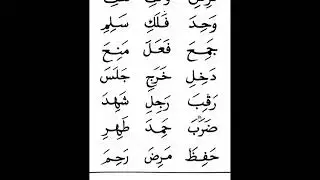 وَحِدَ فَلَكِ سَلِمِ
جَمِحَ فَعَلَ مَنِحَ
دَخِلِ خَرَجَ جَلَسَ
رَقَبَ رَجِلِ شَهِدَ
ضَرَبَ حَمِدَ طَهِرِ
حَفِظَ مَرِضَ رَحِمَ